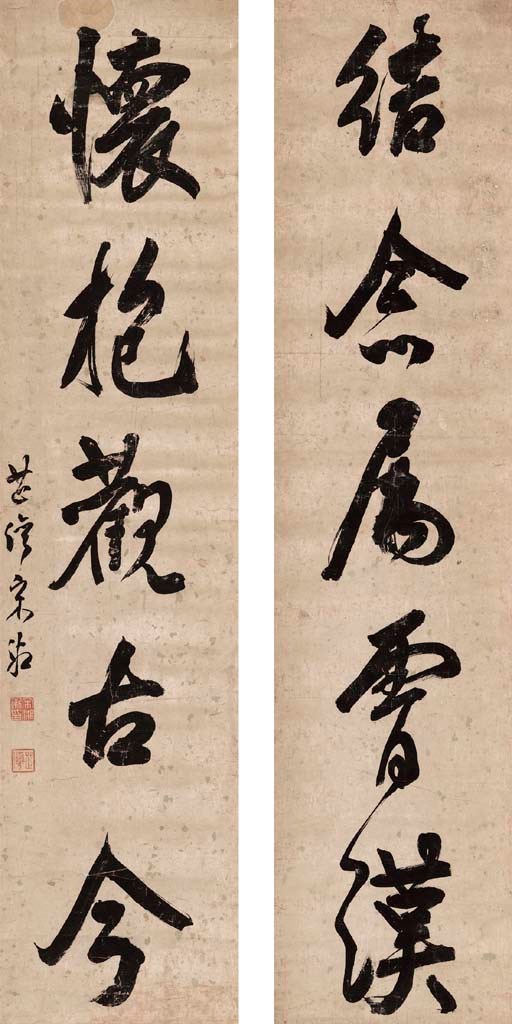 結念屬霄漢
懷抱觀古今
芝僊宋湘